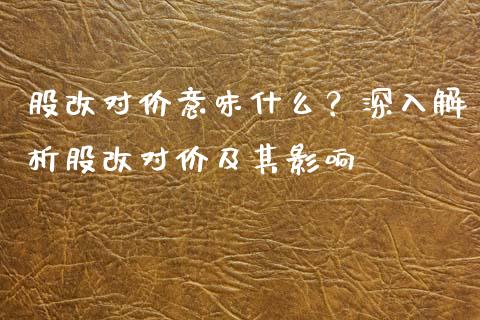 股改对价意味什么？深入解
析股改对价及其影响